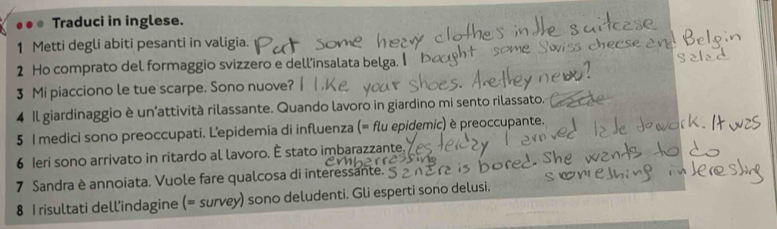 Traduci in inglese.
1 Metti degli abiti pesanti in valigia. Put some heavy clothes in the suitcase
2 Ho comprato del formaggio svizzero e dell'insalata belga. I bought some Swiss cheese and Belgin salad
3 Mi piacciono le tue scarpe. Sono nuove? I like your shoes. Are they new?
4 Il giardinaggio è un'attività rilassante. Quando lavoro in giardino mi sento rilassato.
5 I medici sono preoccupati. L'epidemia di influenza (= flu epidemic) è preoccupante.
6 Ieri sono arrivato in ritardo al lavoro. È stato imbarazzante. Yesterday I arrived late to work. It was
emberressing
7 Sandra è annoiata. Vuole fare qualcosa di interessante. Sandra is bored. She wants to do
something interesting
8 I risultati dell'indagine (= survey) sono deludenti. Gli esperti sono delusi.